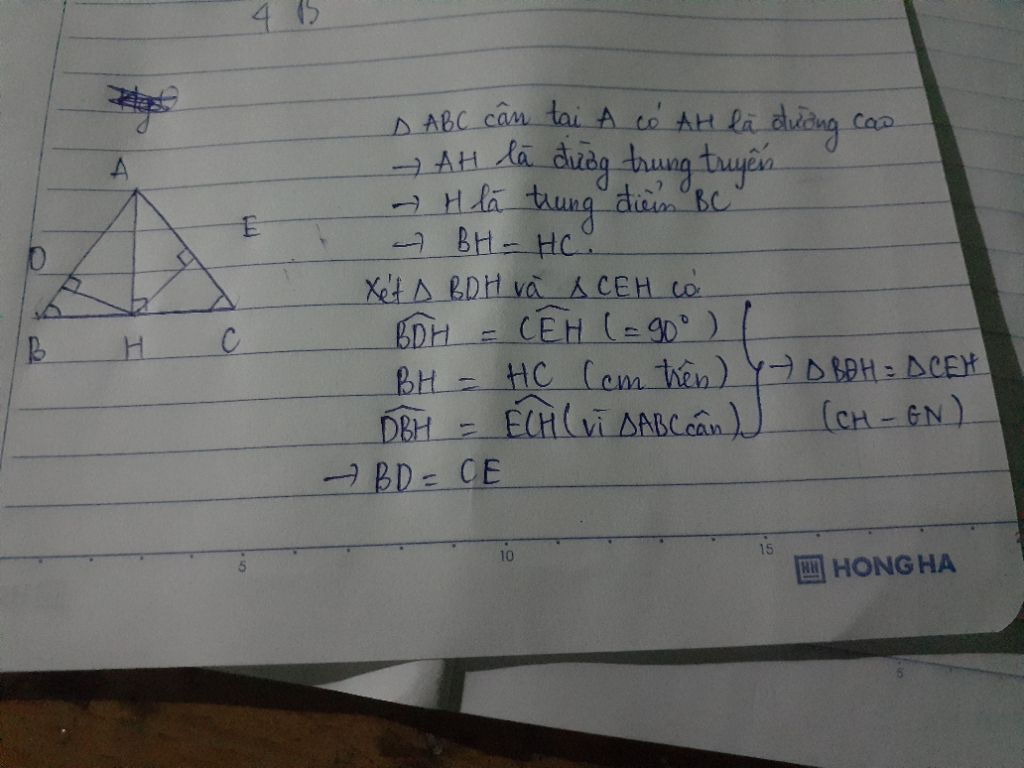 4 B
A
E
D
B H C
Δ ABC cân tại A có AH là đường cao
→ AH là đường trung truyến
→ H là trung điểm BC
→ BH = HC.
Xét Δ BDH và Δ CEH có
BDH = CEH (= 90°)
BH = HC (cm trên) → Δ BDH = Δ CEH
DBH = ECH (vì ΔABC cân) (CH - GN)
→ BD = CE
5 10 15
HH HONG HA
5